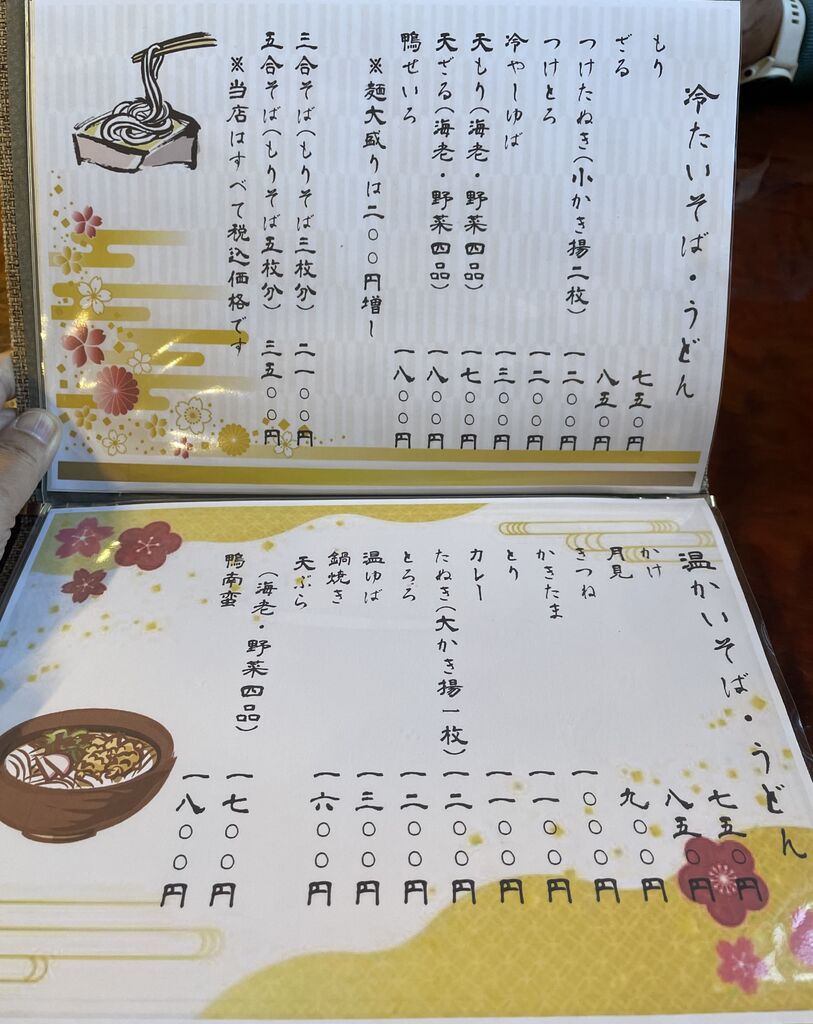 冷たいそば・うどん
もり 七五〇円
ざる 八五〇円
つけたぬき(小かき揚二枚) 一二〇〇円
つけとろ 一二〇〇円
冷やしゆば 一三〇〇円
天もり(海老・野菜四品) 一七〇〇円
天ざる(海老・野菜四品) 一八〇〇円
鴨せいろ 一八〇〇円
※麺大盛りは二〇〇円増し
三合そば(もりそば三枚分) 二一〇〇円
五合そば(もりそば五枚分) 三五〇〇円
※当店はすべて税込価格です
温かいそば・うどん
かけ 七五〇円
月見 八五〇円
きつね 九〇〇円
かきたま 一〇〇〇円
とり 一一〇〇円
カレー 一一〇〇円
たぬき(大かき揚一枚) 一二〇〇円
とろろ 一二〇〇円
温ゆば 一三〇〇円
鍋焼き 一六〇〇円
天ぷら
(海老・野菜四品) 一七〇〇円
鴨南蛮 一八〇〇円